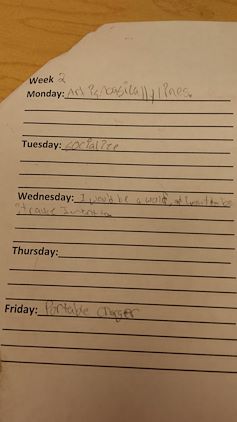 Week 2
Monday: Art is basically lines.
Tuesday: socialize
Wednesday: I would be a wolf,
Thursday:
Friday: Portable charger